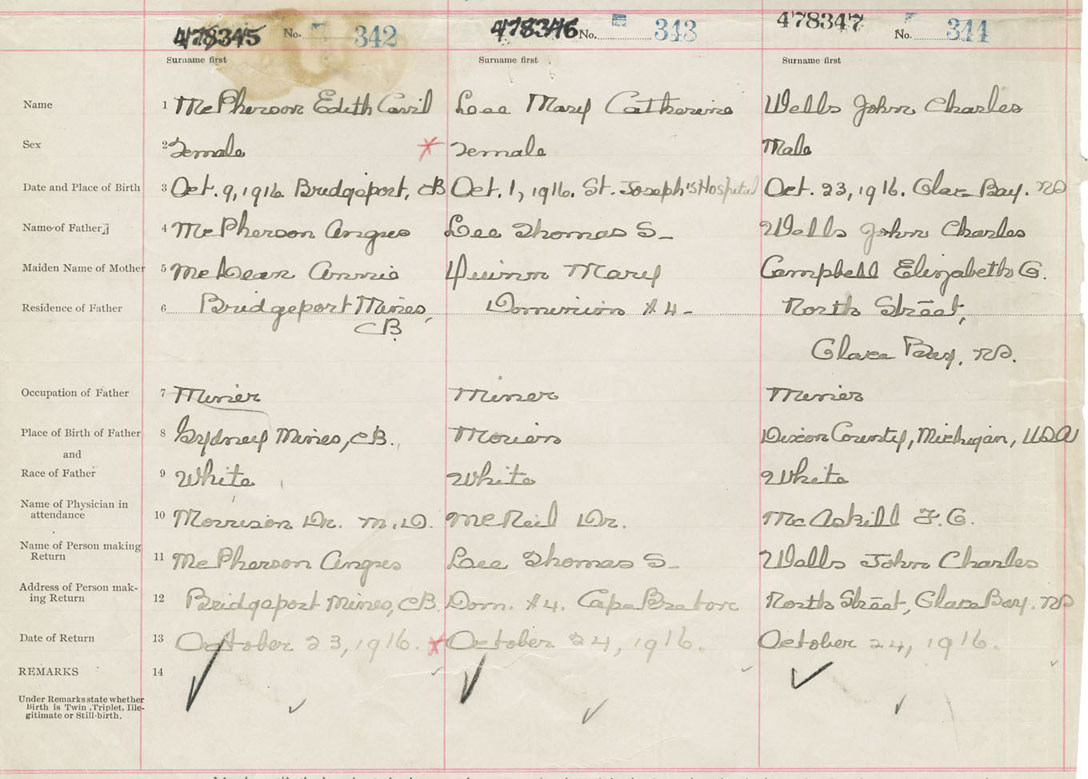 478345 No. 342 478346 No. 343 478347 No. 344
Surname first Surname first Surname first
Name 1 McPherson Edith Cavil Lee Mary Catherine Wells John Charles
Sex 2 Female Female Male
Date and Place of Birth 3 Oct. 9, 1916 Bridgeport, CB Oct. 1, 1916. St. Joseph's Hospital Oct. 23, 1916. Glace Bay. NS
Name of Father 4 McPherson Angus Lee Thomas S- Wells John Charles
Maiden Name of Mother 5 McLean Annie Quinn Mary Campbell Elizabeth G.
Residence of Father 6 Bridgeport Mines, Dominion #4- North Street,
CB Glace Bay, NS.
Occupation of Father 7 Miner Miner Miner
Place of Birth of Father 8 Sydney Mines, CB. Morien Dixon County, Michigan, USA
and
Race of Father 9 White White White
Name of Physician in
attendance 10 Morrison Dr. M.D. McNeil Dr. McAskill F. G.
Name of Person making
Return 11 McPherson Angus Lee Thomas S- Wells John Charles
Address of Person mak-
ing Return 12 Bridgeport Mines, CB. Dom. #4. Cape Breton North Street, Glace Bay. NS
Date of Return 13 October 23, 1916. October 24, 1916. October 24, 1916.
REMARKS 14
Under Remarks state whether
Birth is Twin, Triplet, Ille-
gitimate or Still-birth.